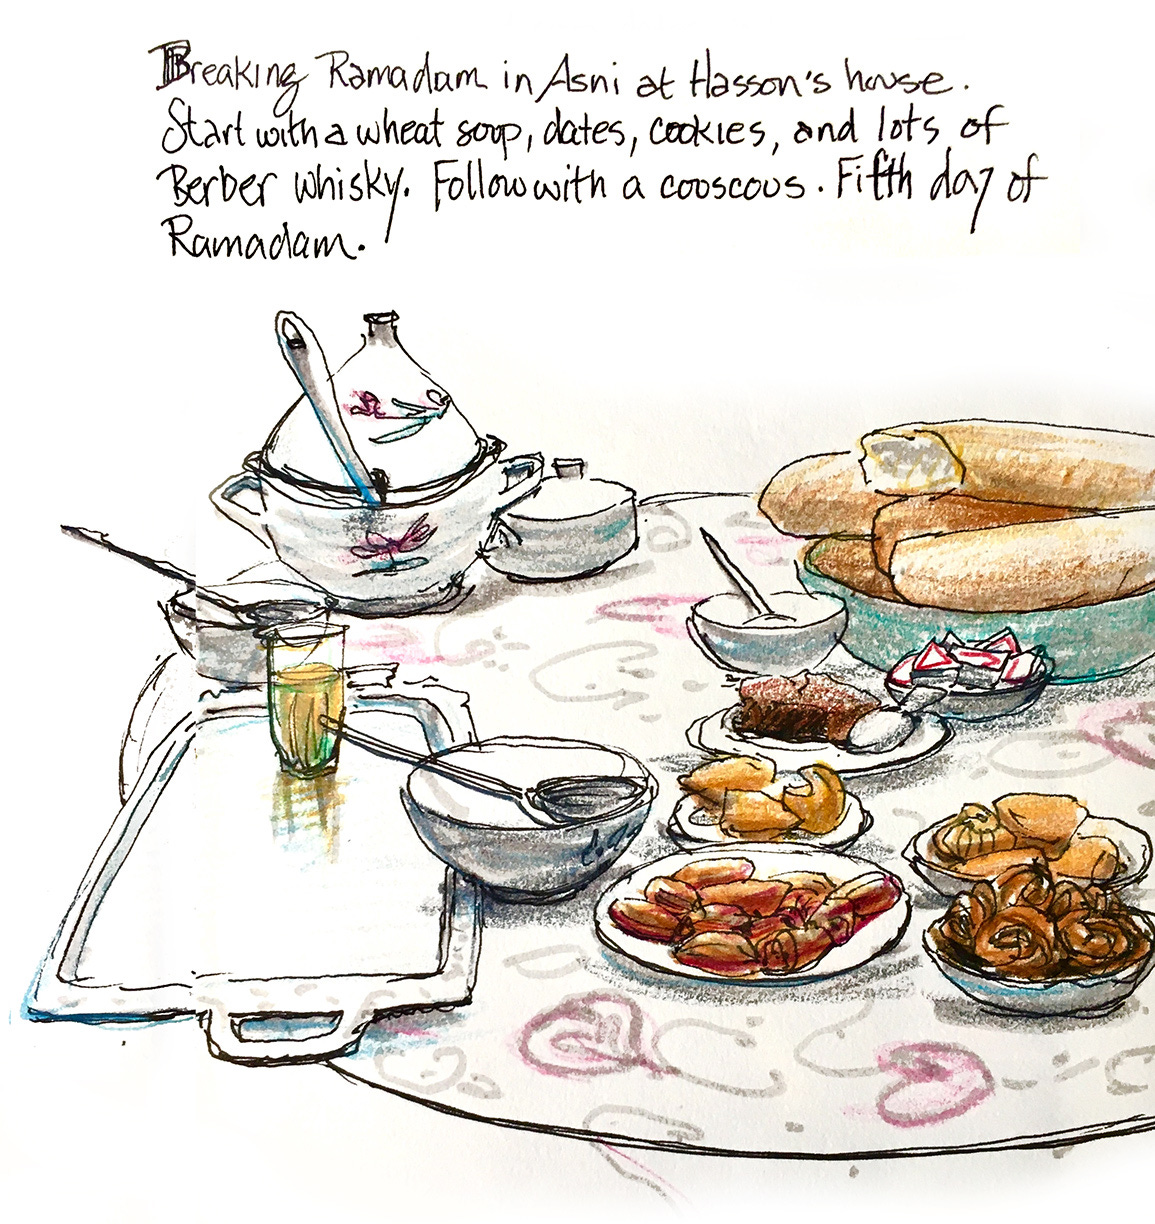 Breaking Ramadam in Asni at Hasson's house.
Start with a wheat soup, dates, cookies, and lots of
Berber whisky. Follow with a cooscous. Fifth day of
Ramadam.